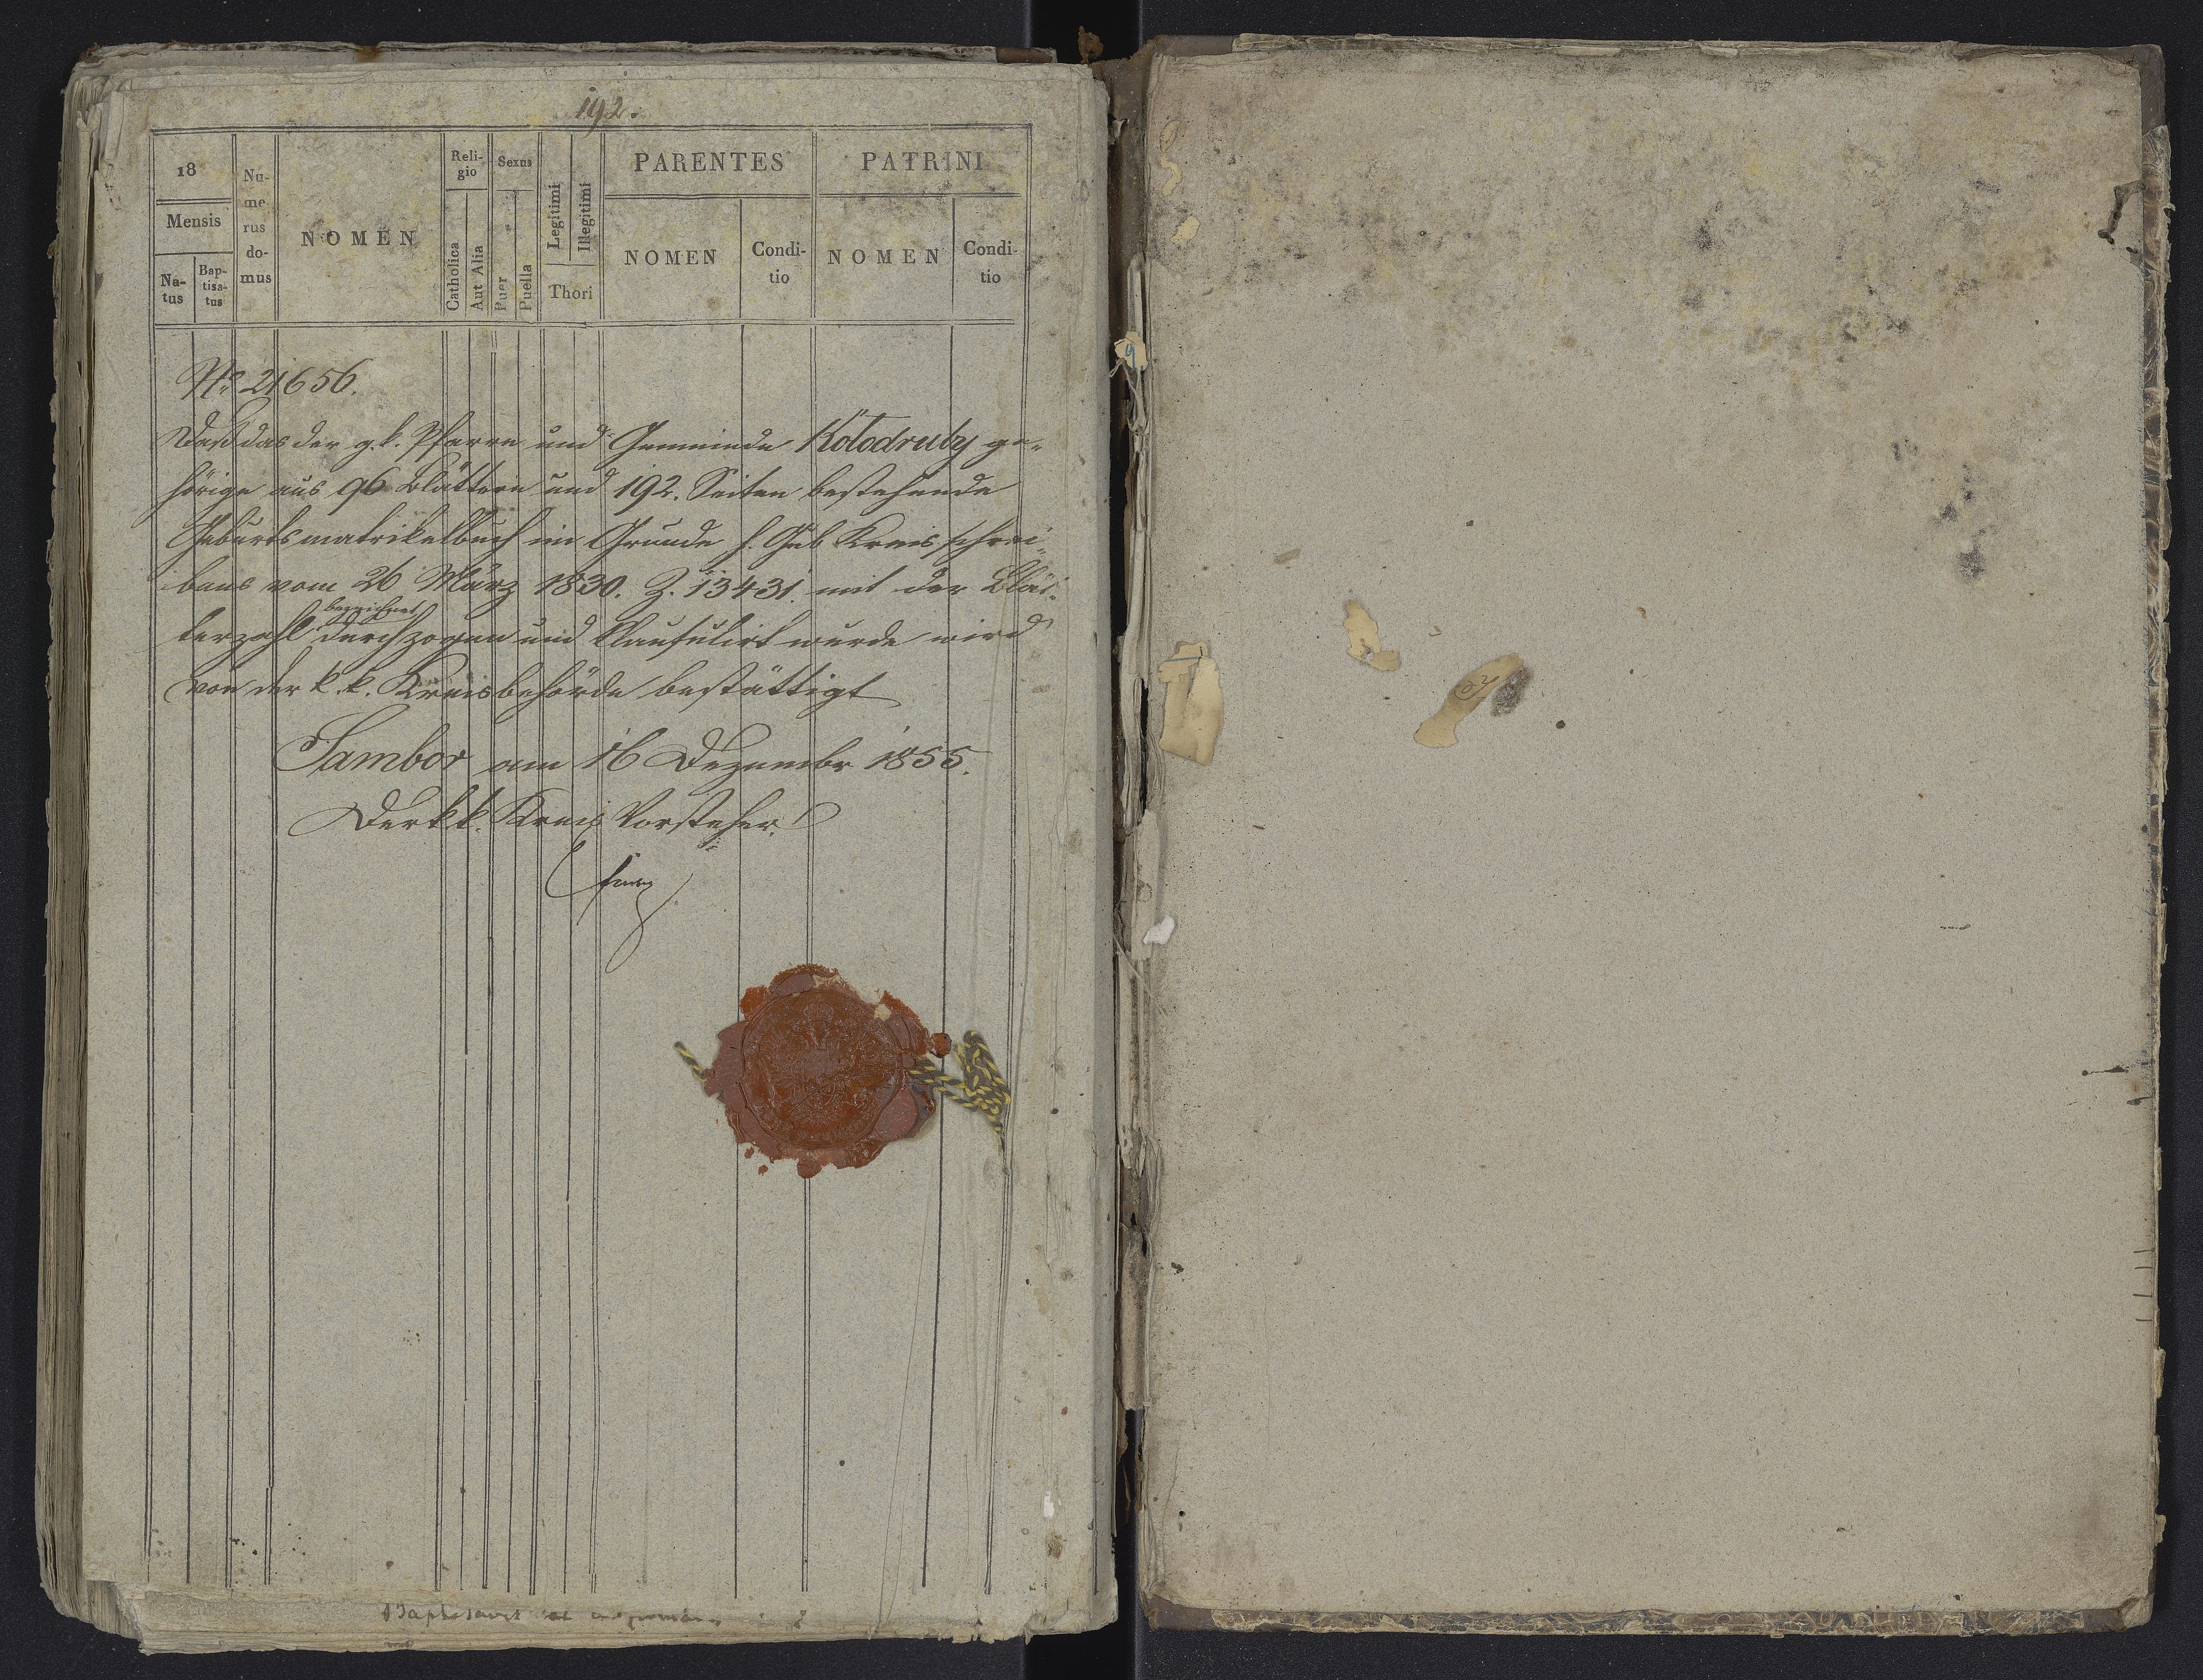 192.
18
Mensis
Na-
tus
Bap-
tisa-
tus
Nu-
me
rus
do-
mus
NOMEN
Reli-
gio
Catholica
Aut Alia
Sexus
Puer
Puella
Legitimi
Illegitimi
Thori
PARENTES
NOMEN
Condi-
tio
PATRINI
NOMEN
Condi-
tio
No 21656.
Daß das der g. k. Pfarre und Gemeinde Kołodruby ge-
hörige aus 96 Blättern und 192. Seiten bestehende
Geburtsmatrikelbuch im Grunde h. Gub Kreisschrei-
bens vom 26 März 1830. Z. 13431. mit der Blät-
bezeichnet
terzahl durchzogen und klausulirt wurde wird
von der k. k. Kreisbehörde bestättigt
Sambor am 16 Dezember 1855.
Der k k. Kreis Vorsteher.
Baptisavit et